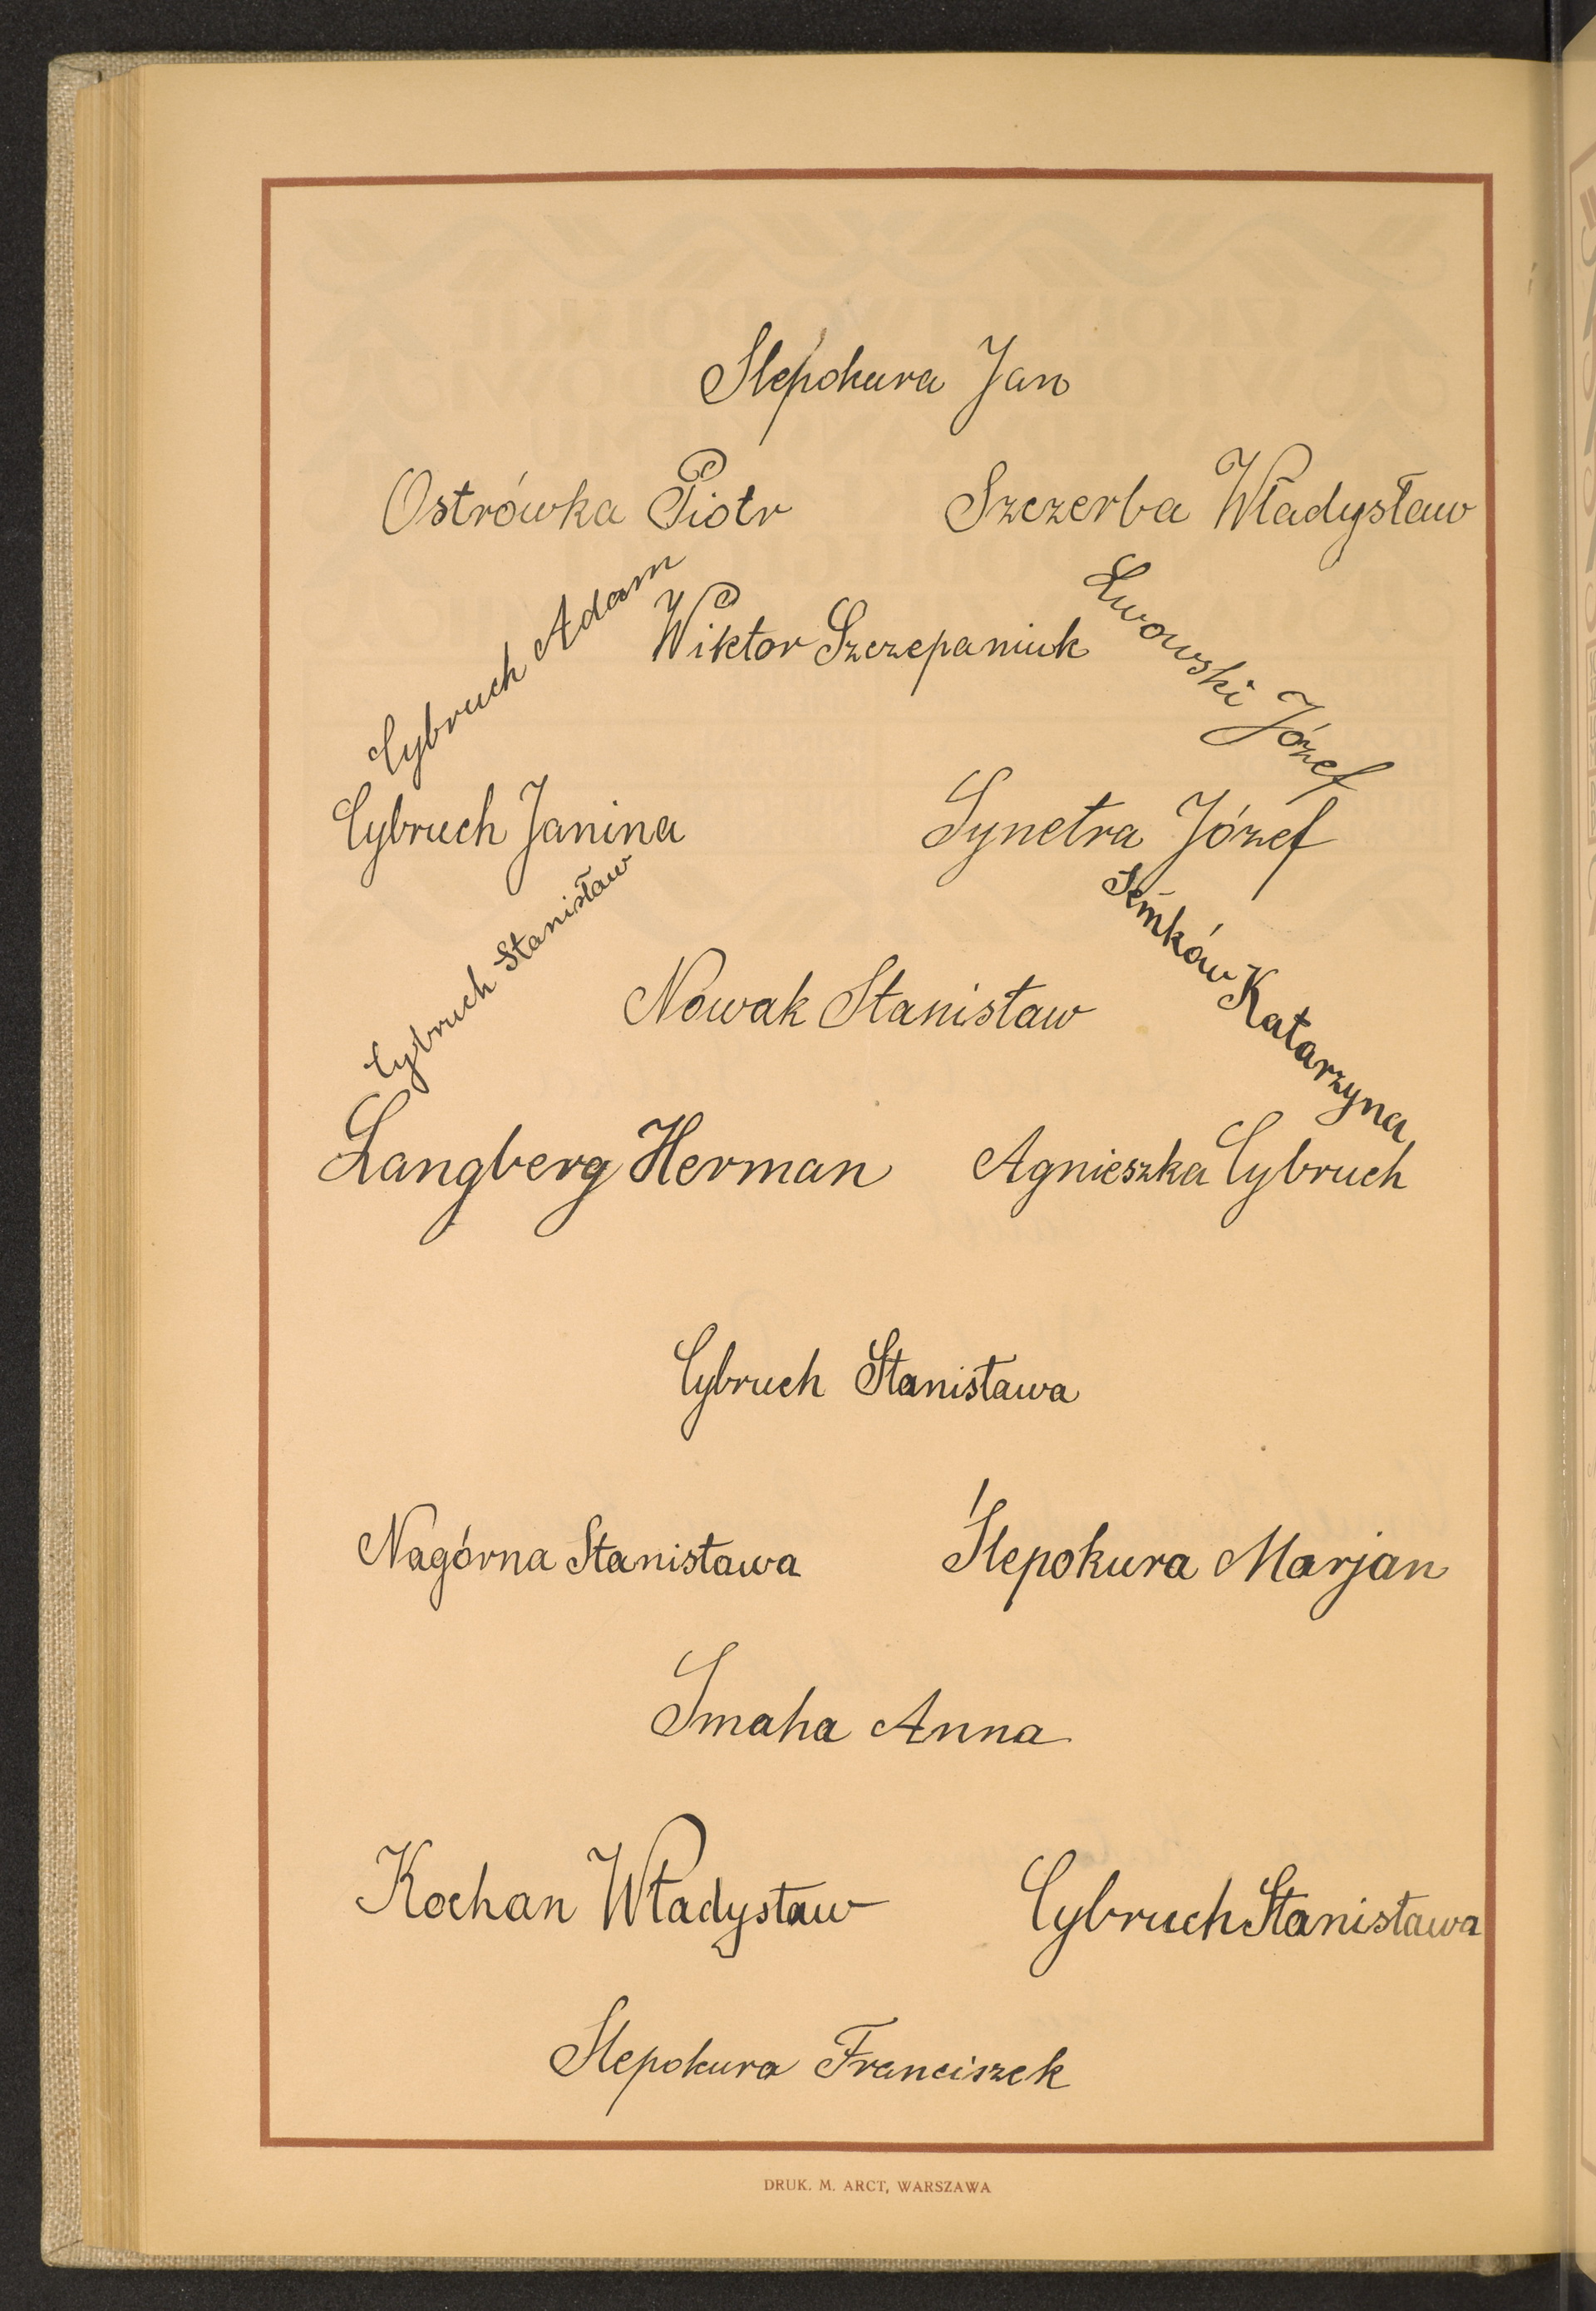 Slepokura Jan
Ostrówka Piotr Szczerba Władysław
Cybruch Adam
Wiktor Szczepaniuk
Lwowski Józef
Cybruch Janina Synetra Józef
Cybruch Stanisław
Nowak Stanisław
Semków Katarzyna
Langberg Herman Agnieszka Cybruch
Cybruch Stanisława
Nagórna Stanisława Ślepokura Marjan
Smaha Anna
Kochan Władysław Cybruch Stanisława
Slepokura Franciszek
DRUK. M. ARCT, WARSZAWA